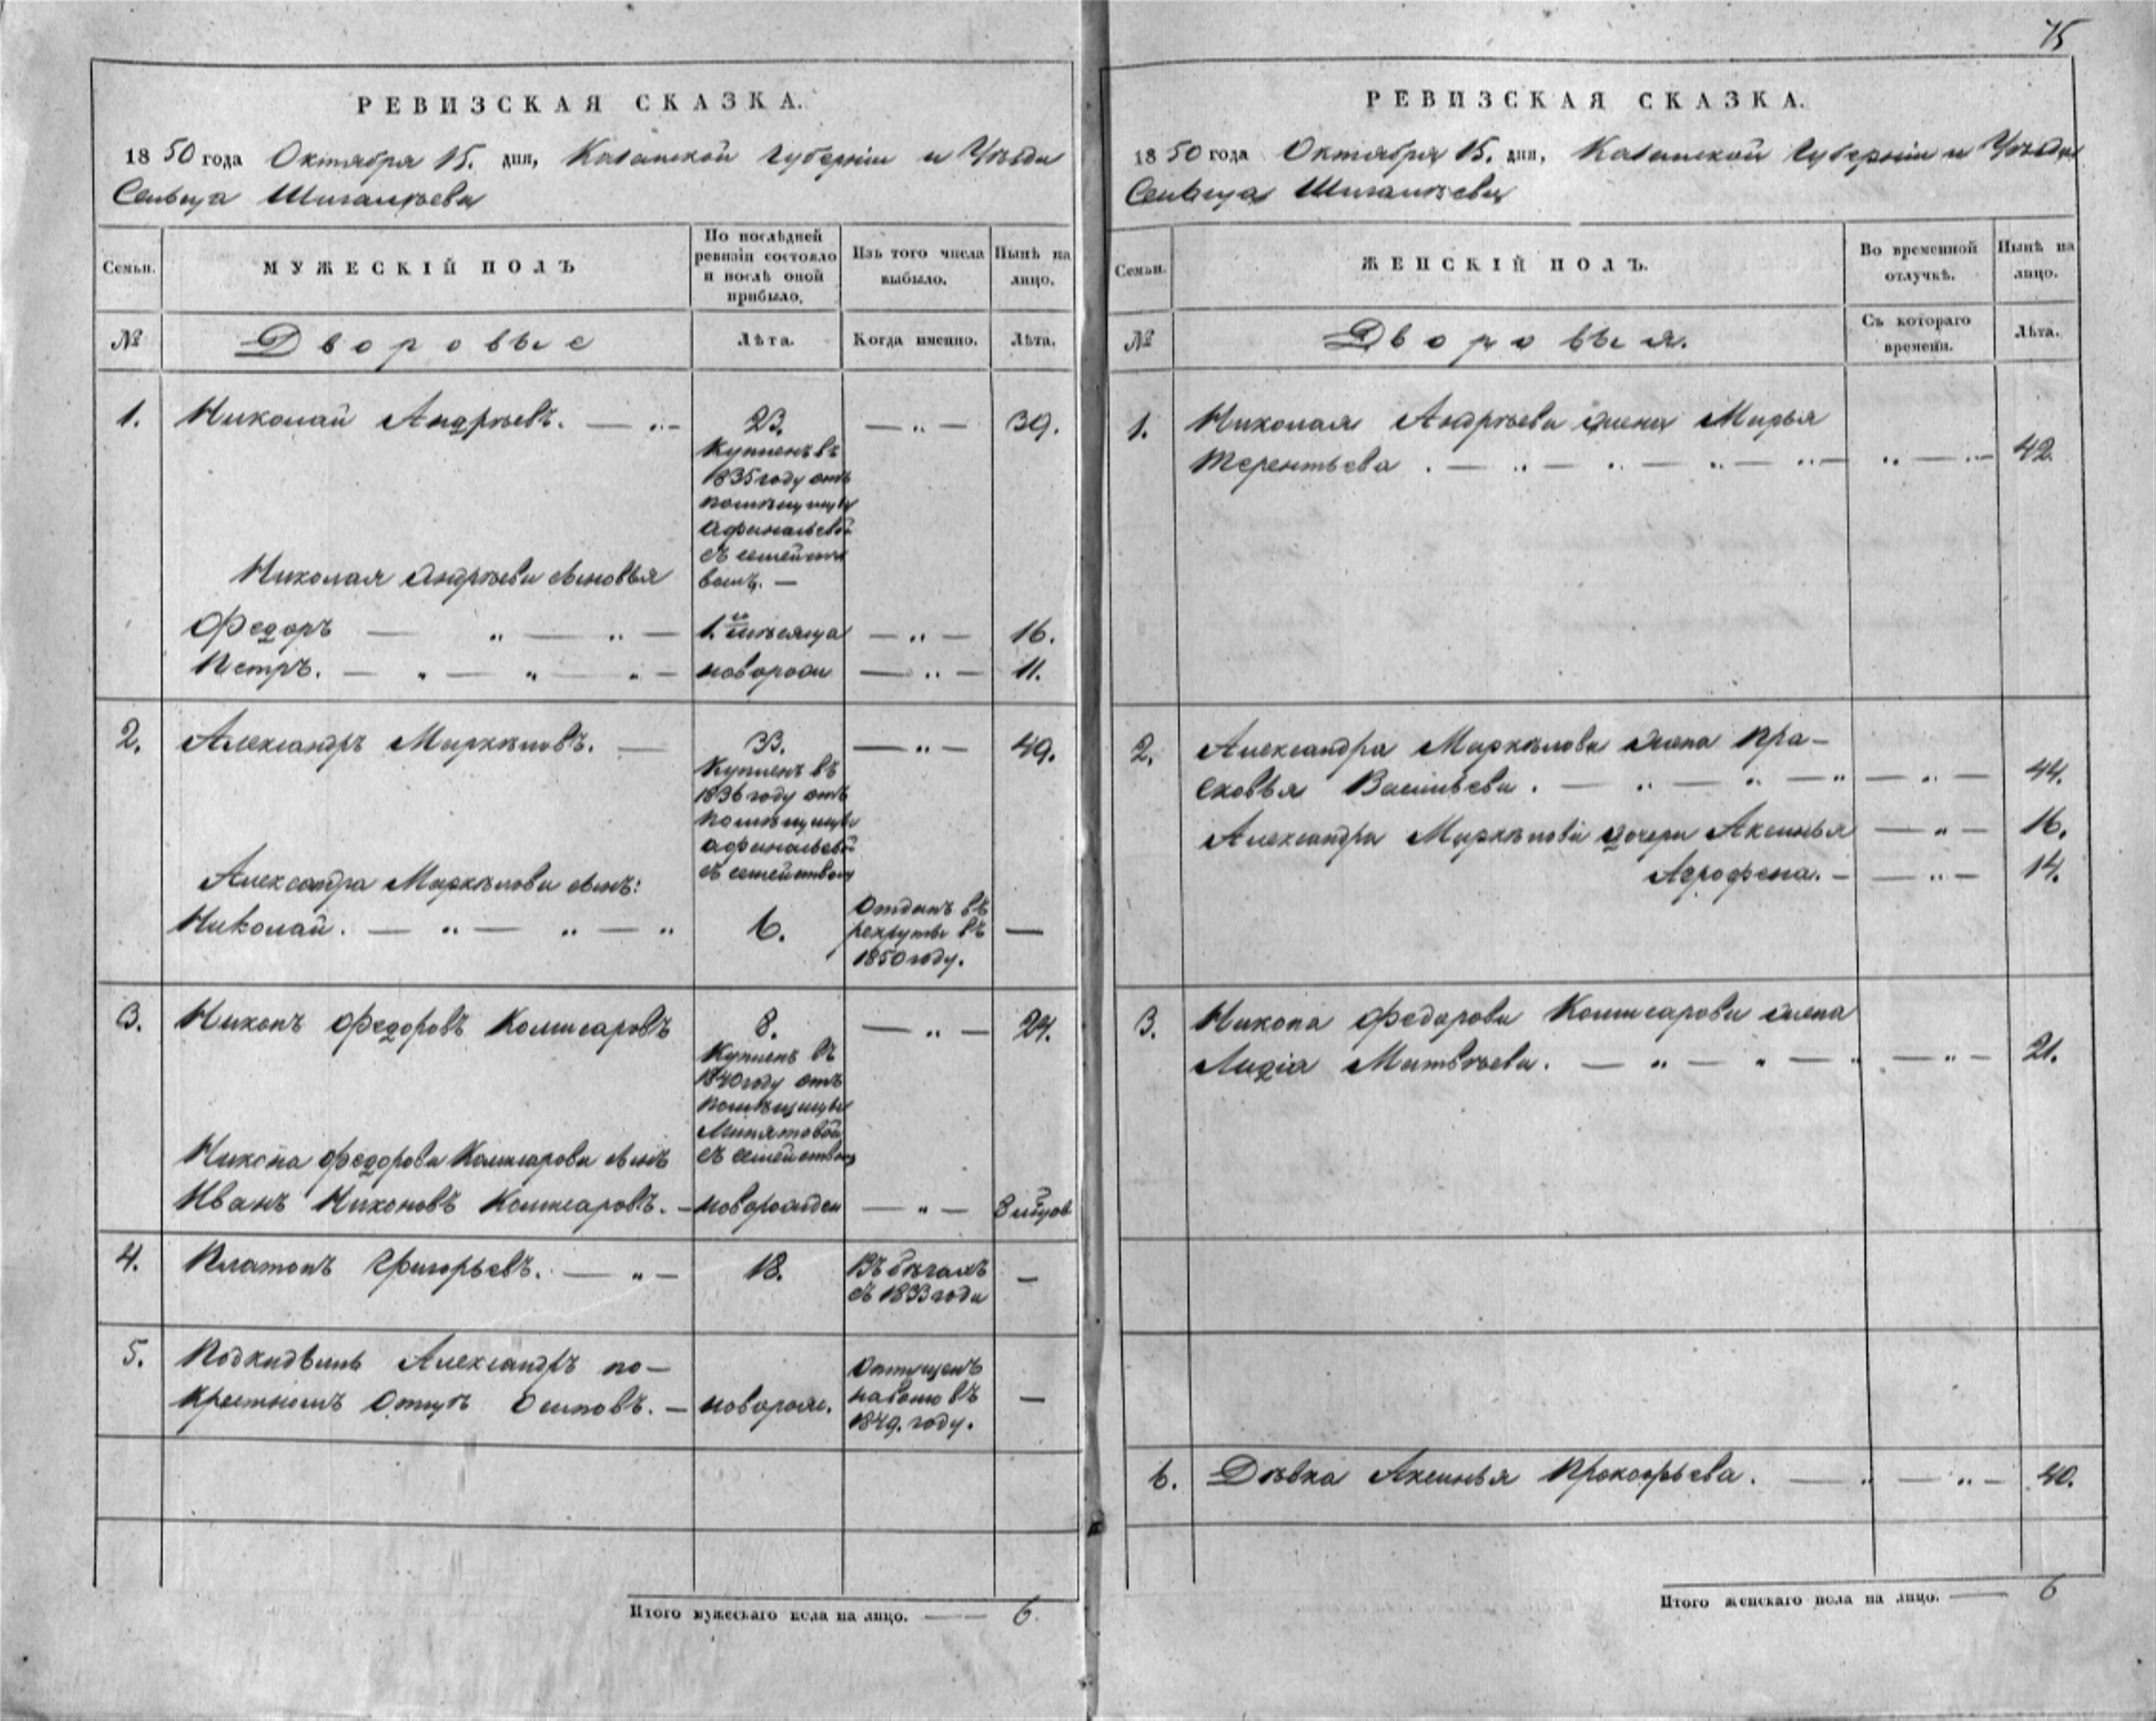 РЕВИЗСКАЯ СКАЗКА.
1850 года Октября 15. дня, Казанской Губерніи и Уѣзда
Сельца Шигалѣева
Семьи. МУЖЕСКІЙ ПОЛЪ По послѣдней ревизіи состояло и послѣ оной прибыло. Изъ того числа выбыло. Нынѣ на лицо.
№ Дворовые Лѣта. Когда именно. Лѣта.
1. Николай Андрѣевъ. 23. 39.
Купленъ въ
1835 году отъ
помѣщицы
съ семейст
вомъ.
Николая Андрѣева сыновья
Федоръ 1. мѣсяца 16.
Петръ. новорож 11.
2. Александръ Маркѣловъ. 33. 49.
Купленъ въ
1836 году отъ
помѣщицы
съ семействомъ
Александра Маркѣлова сынъ:
Николай. 6. Отданъ въ
рекруты въ
1850 году.
3. Никонъ Федоровъ Комисаровъ 8. 24.
Купленъ въ
1840 году отъ
помѣщицы
съ семействомъ
Никона Федорова Комисарова сынъ
Иванъ Никоновъ Комисаровъ. новорожден
4. Платонъ Григорьевъ. 18. Въ бѣгахъ
съ 1833 года
5. Подкидышь Александръ по-
крестномъ Отцѣ Осиповъ. новорож. Отпущенъ
на волю въ
1849. году.
Итого мужескаго пола на лицо. 6.
75
РЕВИЗСКАЯ СКАЗКА.
1850 года Октября 15. дня, Казанской Губерніи и Уѣзда
Сельца Шигалѣева
Семьи. ЖЕНСКІЙ ПОЛЪ. Во временной отлучкѣ. Нынѣ на лицо.
№ Дворовыя. Съ котораго времени. Лѣта.
1. Николая Андрѣева жена Марья
Терентьева. 42.
2. Александра Маркѣлова жена Пра-
сковья Васильева. 44.
Александра Маркѣлова дочери Аксинья 16.
Агрофена. 14.
3. Никона Федорова Комисарова жена
Лидія Матвѣева. 21.
6. Дѣвка Аксинья Прокофьева. 40.
Итого женскаго пола на лицо. 6